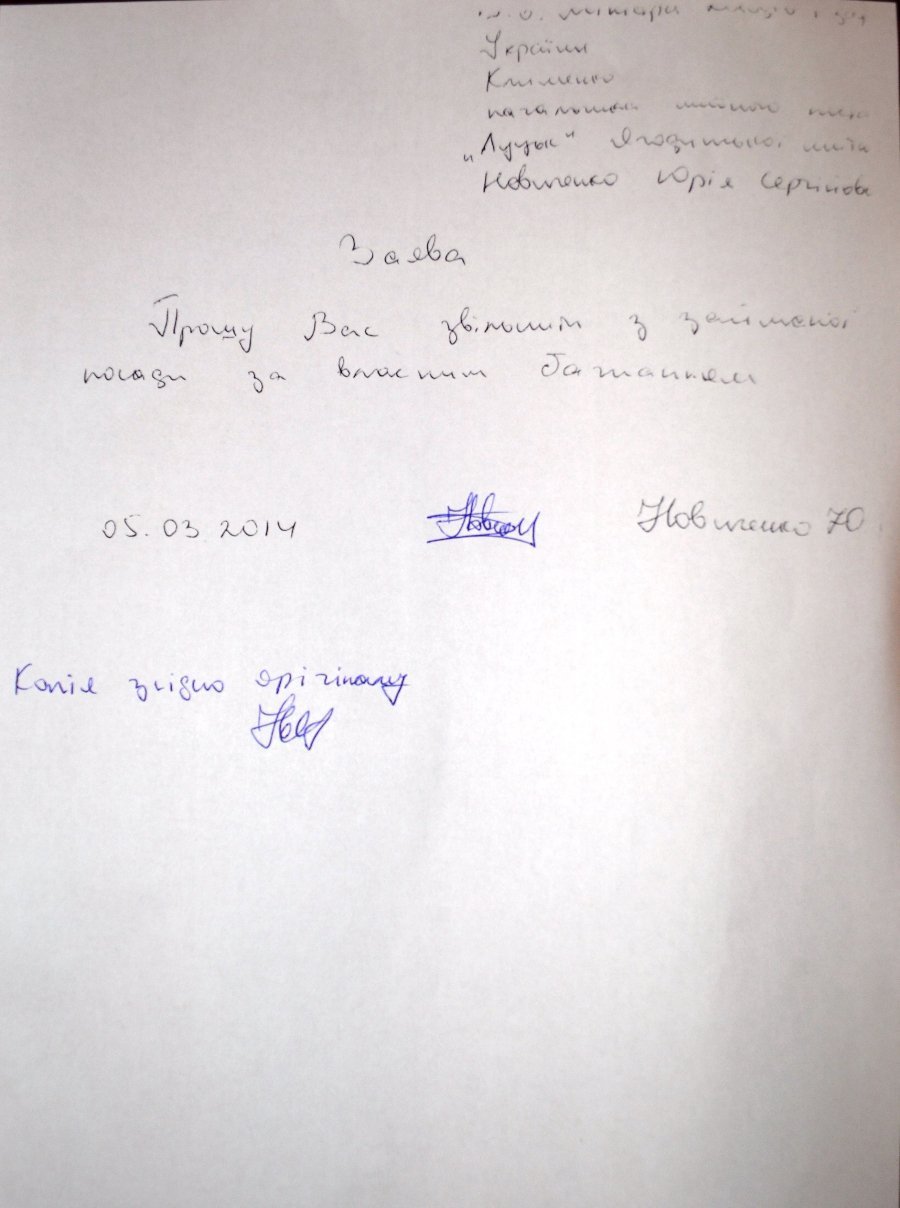 В.о. міністра доходів і
України
Клименко
начальника митного поста
„Луцьк" Ягодинської митн
Новиченко Юрія Сергійови
Заява
Прошу Вас звільнити з займаної
посади за власним бажанням
05.03.2014 Новиченко Ю
Копія згідно орігіналу